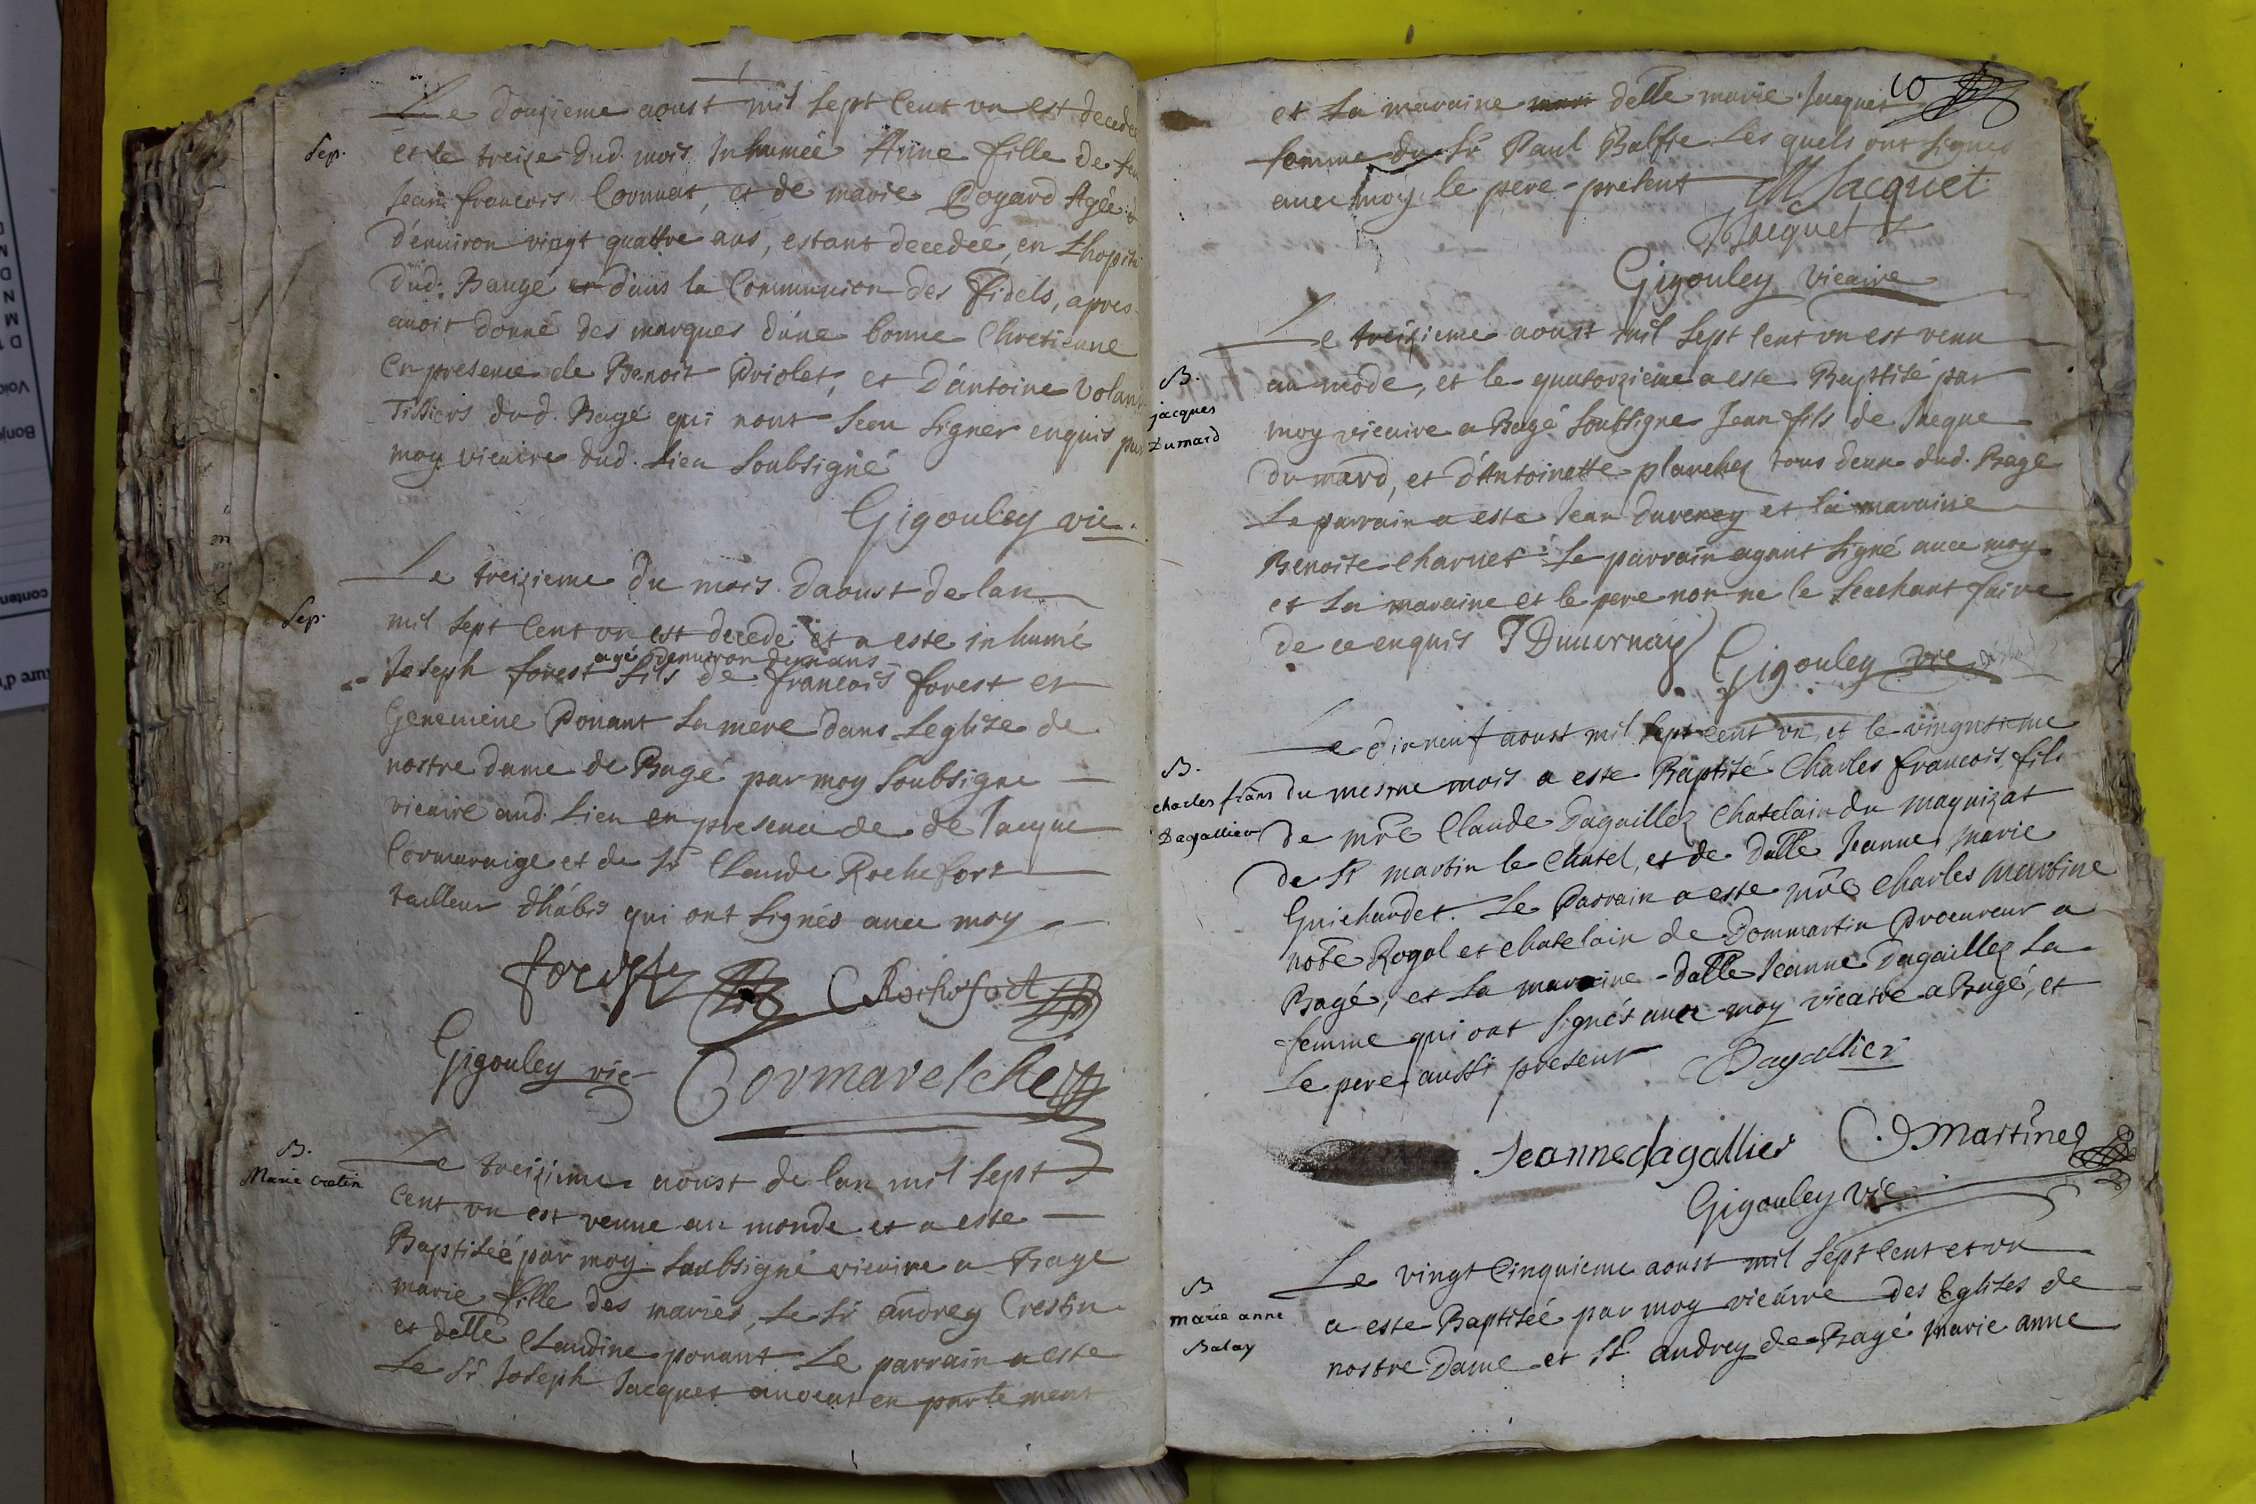 Le douzieme aoust mil sept cent un est decedée
Sep.
et le treize dud. mois Inhumée Anne fille de feu
Jean francois Cornuat, et de marie Poyard Agée
d'environ vingt quattre ans, estant decedée, en Lhopital
dud. Baugé dans la Communion des fidels, apres
avoit donné des marques d'une bonne Chretienne
En presence de Benoit Priolet, et D'antoine Volant
Tissiers dud. Bagé qui nont sceu signer enquis par
moy vicaire dud. Lieu soubsigné
Gigouley vic.
Le treizieme du mois daoust de lan
Sep.
mil sept cent un est decedé et a esté inhumé
agé denviron deux ans
Joseph forest fils de francois forest et
Genevieve Ponant sa mere dans Leglise de
nostre dame de Bagé par moy soubsigné
vicaire aud. Lieu en presence de de Jacque
Cormaraige et de Sr Claude Rochefort
tailleur d'habis qui ont signés avec moy
forest
C Rochefort
Gigouley vic
Cormareiche
B.
Marie cretin
Le treizieme aoust de lan mil sept
cent un est venue au monde et a esté
Baptisée par moy soubsigné vicaire a Bagé
marie fille des mariés, Le Sr andrey Crestin
et delle Claudine ponant Le parrain a esté
Le Sr Joseph Jacquet avocat en parlement
10
et La maraine delle marie Jacquet
femme du Sr Paul Balfie Les quels ont signés
avec moy le pere present MJacquet
JJacquet
Gigouley vicaire
Le treizieme aoust mil sept cent un est venu
B.
jacques
Dumard
au mode, et le quatorzieme a esté Baptisé par
moy vicaire a Bagé soubsigne Jean fils de Jacque
Dumard, et d'Antoinette planchez tous deux dud. Bagé
Le parrain a esté Jean duverney et la maraine
Benoite Charvet Le parrain ayant signé avec moy
et La maraine et le pere non ne le scachant faire
de ce enquis J Duvernay
Gigouley vic
Le dixneuf aoust mil sept cent un, et le vingutieme
B.
charles frans
Dagallier
du mesme mois a esté Baptisé Charles francois, fils
de mre Claude Dagaillez Chatelain du maquizat
de St martin le Chatel, et de Dalle Jeanne Marie
Guichardet. Le Parrain a esté mre Charles Martine
note Royal et chatelain de Dommartin Procureur a
Bagé, et La maraine Dalle Jeanne Dagaillez sa
femme qui ont signés avec moy vicaire a Bagé, et
Le pere aussi present
Dagallier
Jeanne dagallier
C Martine
Gigouley vic
B.
marie anne
Balay
Le vingt cinquieme aoust mil sept cent et un
a esté Baptisée par moy vicaire des Eglises de
nostre Dame et St andrey de Bagé marie anne